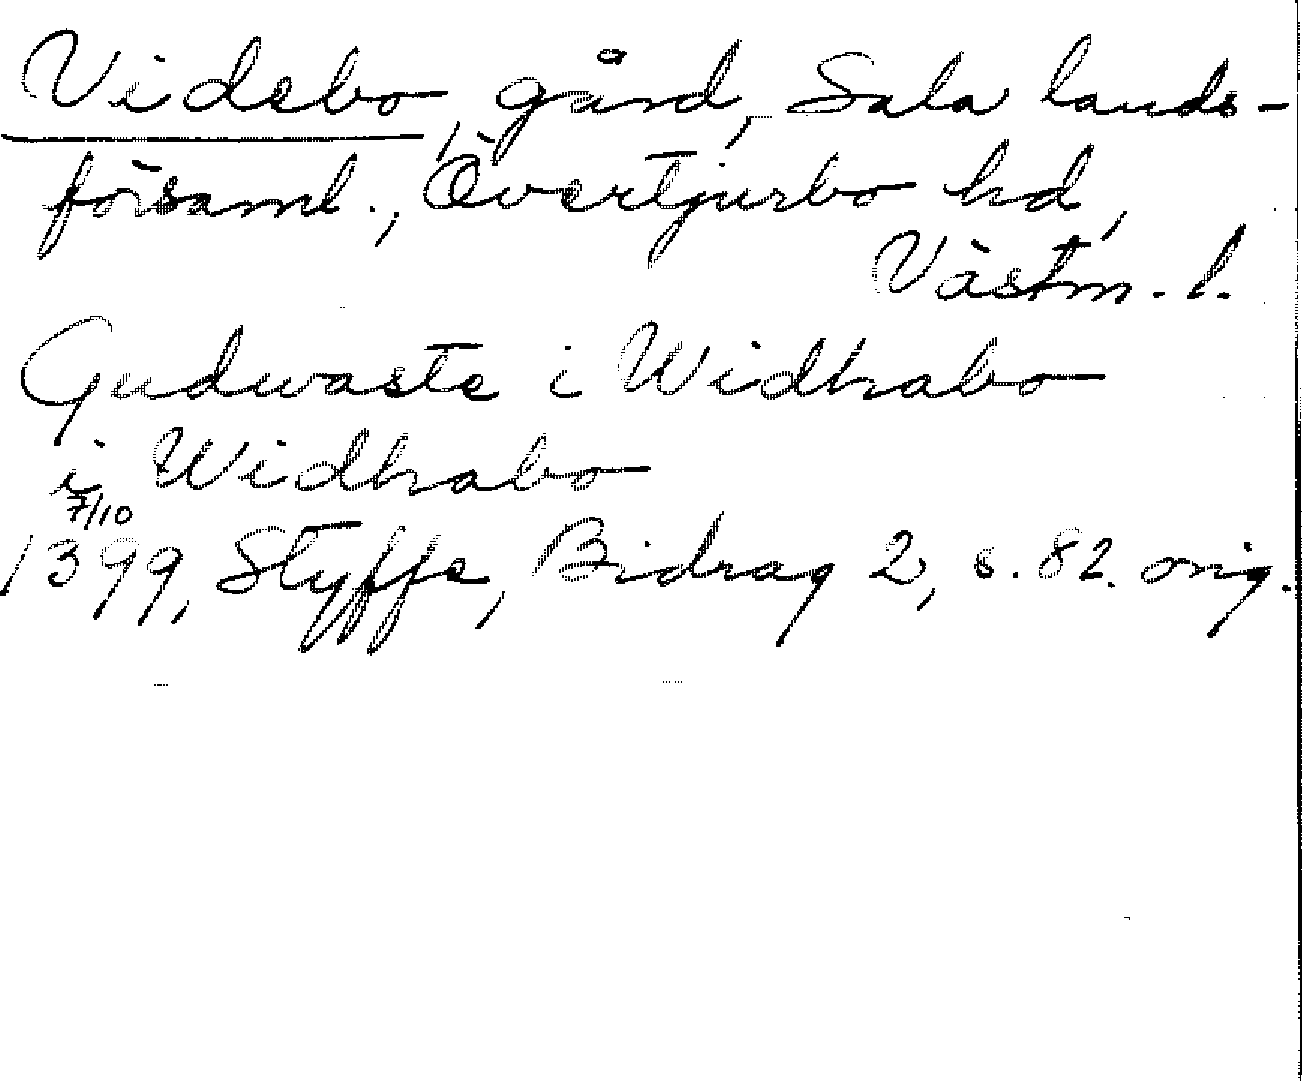 Videbo, gård, Sala lands-
församl., Övertjurbo hd,
Västm. l.
Gudwaste i Widhabo
i Widhabo
7/10
1399, Styffe, Bidrag 2, s. 82. orig.